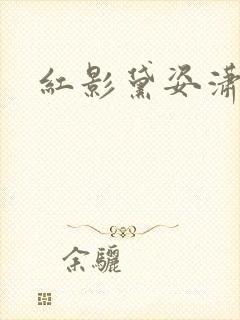 紅影黛姿瀟
余驪